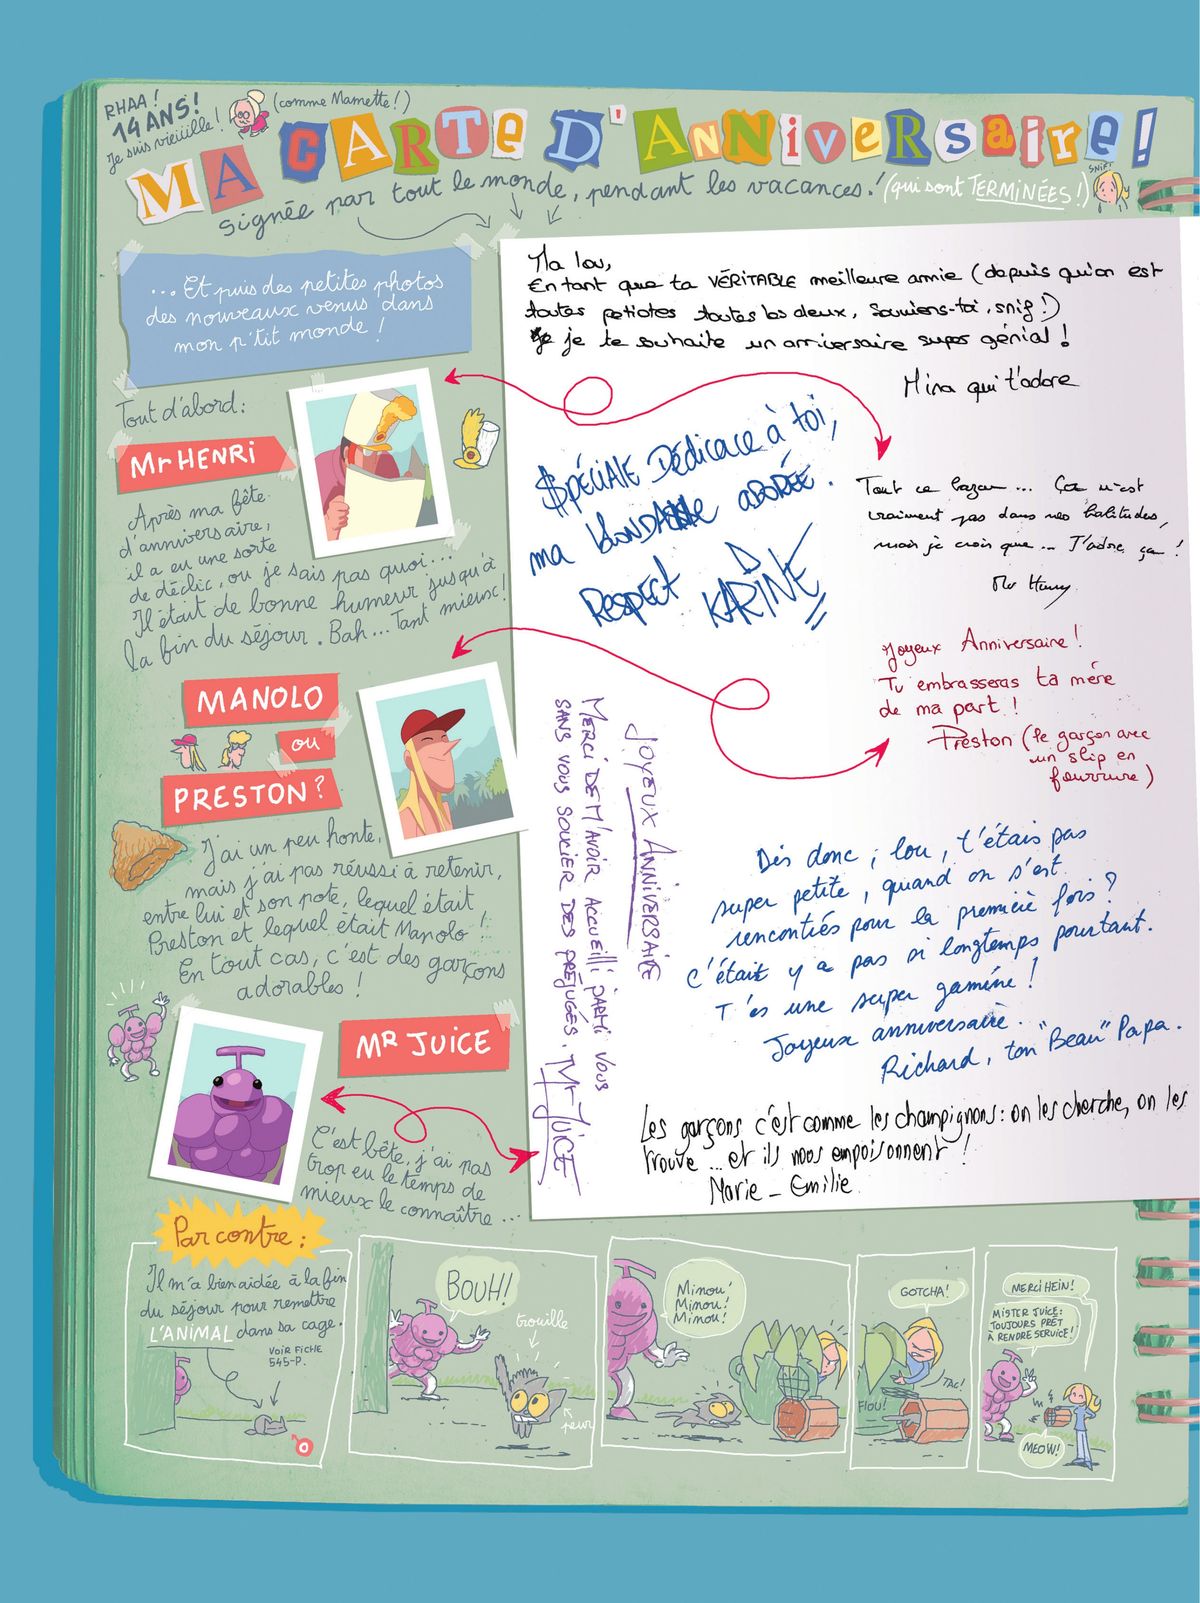 RHAA !
14 ANS !
Je suis vieiiille !
(comme Mamette !)
MA CARTE D'ANNIVERSAIRE !
signée par tout le monde, pendant les vacances ! (qui sont TERMINÉES !)
SNIF!
... Et puis des petites photos
des nouveaux venus dans
mon p'tit monde !
Tout d'abord :
Mr HENRI
Après ma fête
d'anniversaire,
il a eu une sorte
de déclic, ou je sais pas quoi...
Il était de bonne humeur jusqu'à
la fin du séjour. Bah... Tant mieux !
MANOLO
ou
PRESTON ?
J'ai un peu honte,
mais j'ai pas réussi à retenir,
entre lui et son pote, lequel était
Preston et lequel était Manolo !
En tout cas, c'est des garçons
adorables !
Mr JUICE
C'est bête, j'ai pas
trop eu le temps de
mieux le connaître...
Ma lou,
En tant que ta VÉRITABLE meilleure amie (depuis qu'on est
toutes petiotes toutes les deux, souviens-toi, snif !)
je te souhaite un anniversaire super génial !
Mina qui t'adore
SPÉCIALE Dédicace à toi,
ma blondasse adorée.
RESPECT
KARINE
Tout ce bazar... Ça n'est
vraiment pas dans mes habitudes,
mais je crois que... J'adore, ça !
Mr Henry
Joyeux Anniversaire !
Tu embrasseras ta mère
de ma part !
Preston (le garçon avec
un slip en
fourrure)
JOYEUX ANNIVERSAIRE
MERCI DE M'AVOIR ACCUEILLI PARMI VOUS
SANS VOUS SOUCIER DES PRÉJUGÉS. Mr JUICE
Dis donc, lou, t'étais pas
super petite, quand on s'est
rencontrés pour la première fois ?
C'était y a pas si longtemps pourtant.
T'es une super gamine !
Joyeux anniversaire.
Richard, ton "Beau" Papa.
Les garçons c'est comme les champignons : on les cherche, on les
trouve... et ils nous empoisonnent !
Marie-Emilie
Par contre :
Il m'a bien aidée à la fin
du séjour pour remettre
L'ANIMAL dans sa cage.
VOIR FICHE
545-P.
BOUH !
trouille
peur
Minou !
Minou !
Minou !
GOTCHA !
TAC !
FIOU !
MERCI HEIN !
MISTER JUICE :
TOUJOURS PRÊT
À RENDRE SERVICE !
MEOW !